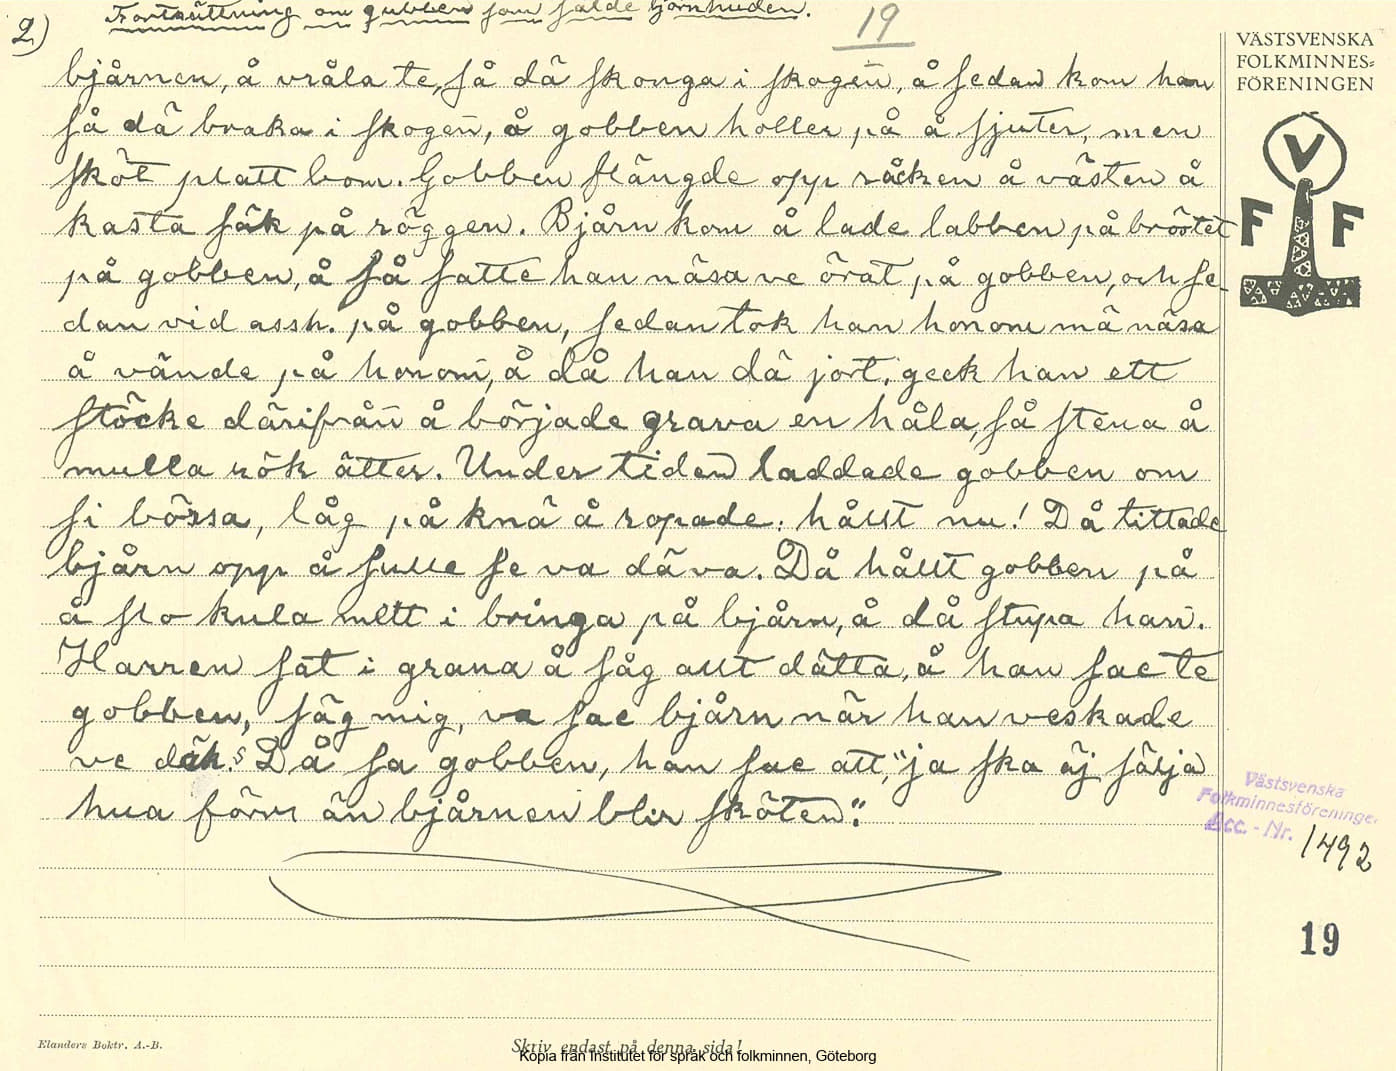 2)
Fortsättning om gubben som sålde björnhuden.
19
VÄSTSVENSKA
FOLKMINNES=
FÖRENINGEN
V
F F
bjårnen, å vråla te, så dä skonga i skogen, å sedan kom han
så dä braka i skogen, å gobben holler på å sjuter, men
sköt platt bom. Gobben slängde opp råcken å västen å
kasta säk på röggen. Bjårn kom å lade labben på bröstet
på gobben, å så satte han näsa ve örat på gobben, och se-
dan vid assh. på gobben, sedan tok han honom mä näsa
å vände på honom, å då han dä jort, geck han ett
stöcke därifrån å började grava en håla, så stena å
mulla rök ätter. Under tiden laddade gobben om
si börsa, låg på knä å ropade: hållt nu! Då tittade
bjårn opp å sulle se va dä va. Då hållt gobben på
å slo kula mett i bringa på bjårn, å då stupa han.
Harren sat i grana å såg allt dätta, å han sae te
gobben, säg mig, va sae bjårn när han veskade
ve däk? Då sa gobben, han sae att, "ja ska äj sälja
hua förr än bjårnen blir sköten".
Västsvenska
Folkminnesföreningen
Acc. - Nr. 1492
19
Elanders Boktr. A.-B.
Skriv endast på denna sida!
Kopia från Institutet för språk och folkminnen, Göteborg